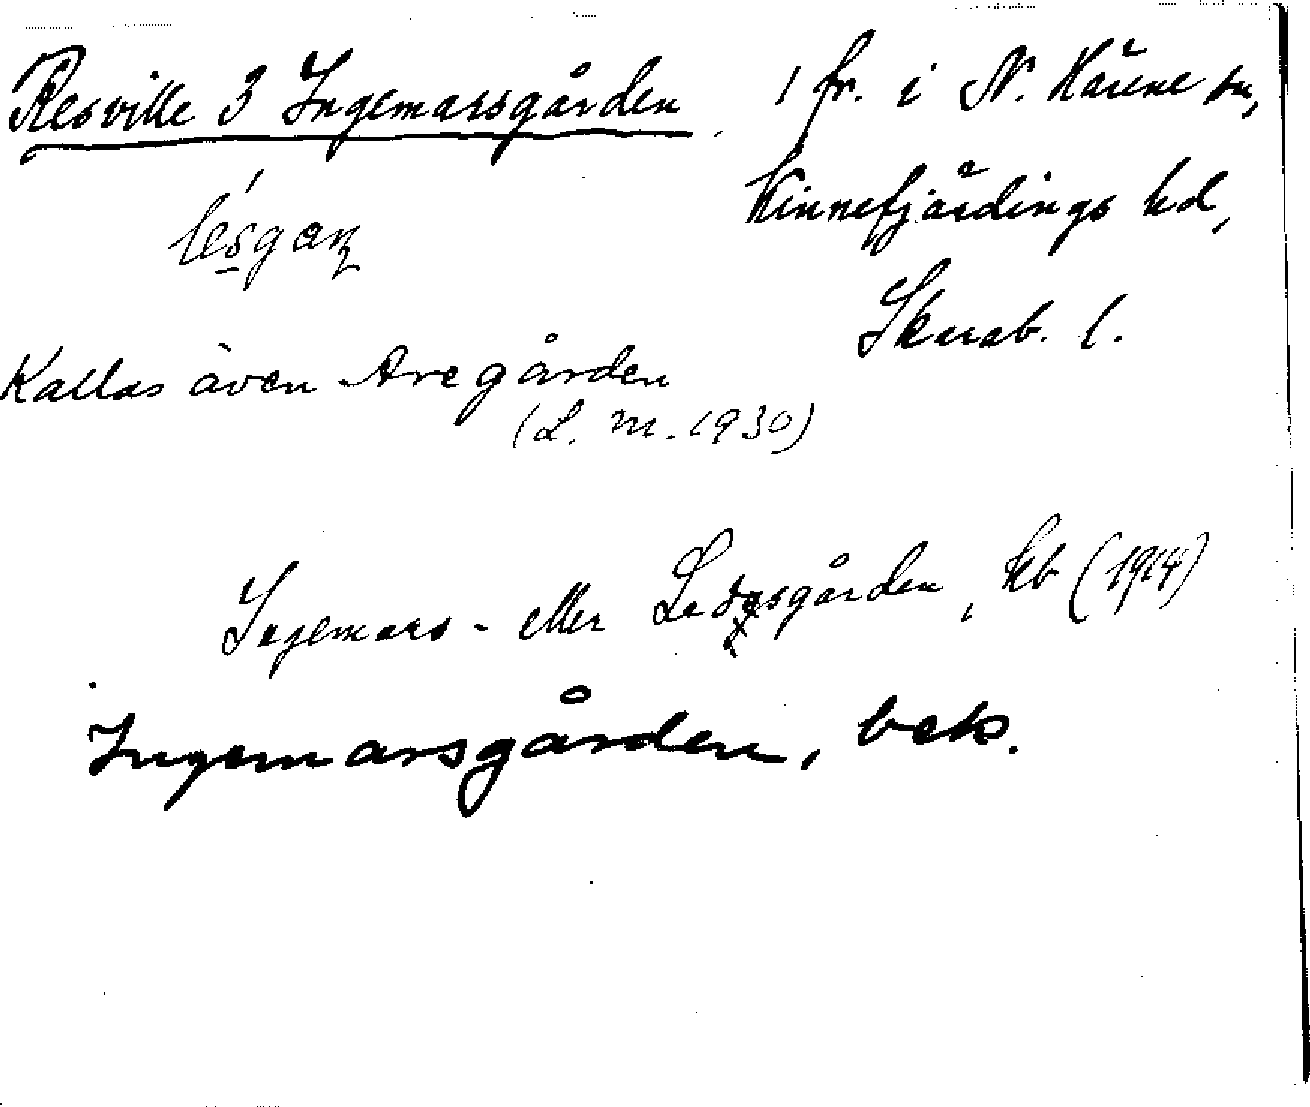 Resville 3 Ingemarsgården
1 fr. i N. Kärene sn,
Kinnefjärdings hd,
Skarab. l.
lésgan
Kallas även Aregården
(L. M. 1930)
Ingemars- eller Ledsgården, kb (1914)
Ingemarsgården, bek.